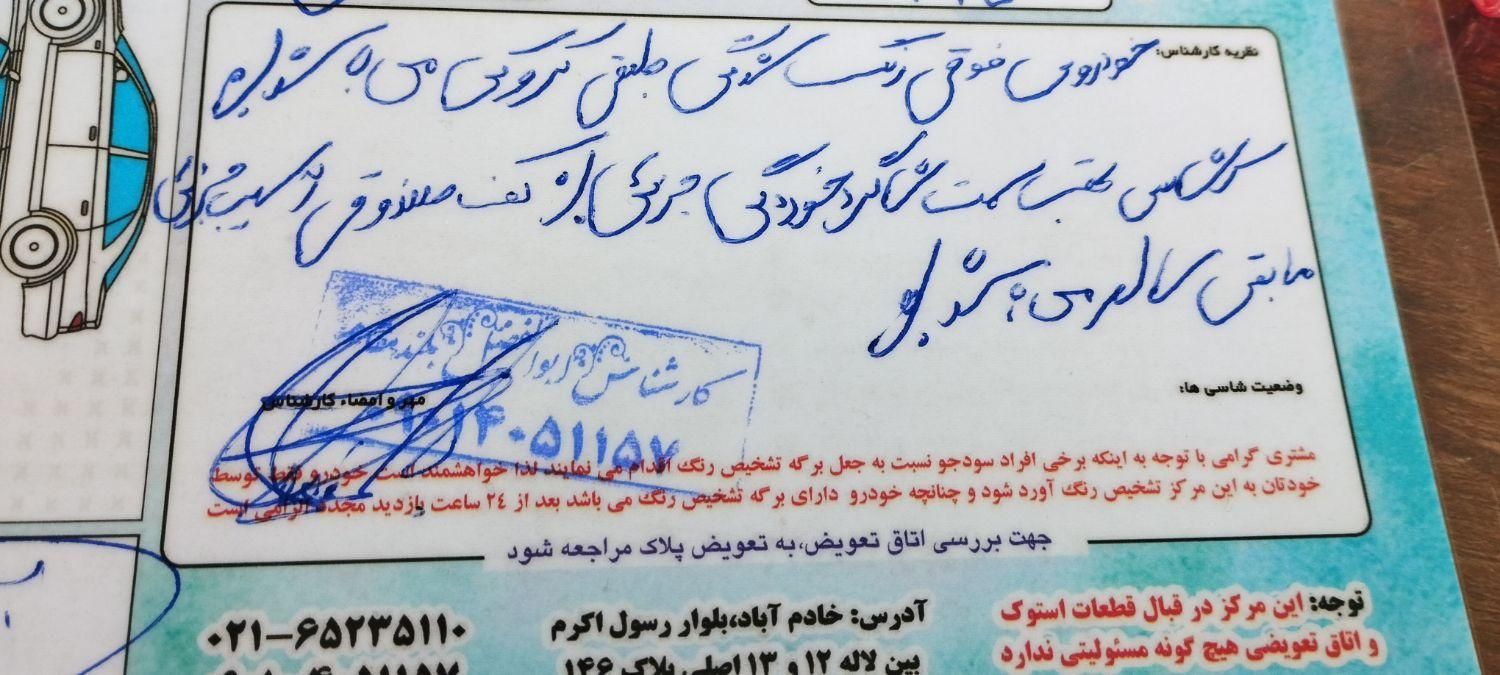 نظریه کارشناس: خودروی فوقی رنگ شدگی طبق کروکی می باشد
سرشاسی عقب سمت شاگرد خوردگی جزئی کف صندوق آسیب جزئی
مابقی سالم می باشد
وضعیت شاسی ها:
کارشناس
مهر و امضاء کارشناس
مشتری گرامی با توجه به اینکه برخی افراد سودجو نسبت به جعل برگه تشخیص رنگ اقدام می نمایند لذا خواهشمند است خودرو فقط توسط
خودتان به این مرکز تشخیص رنگ آورد شود و چنانچه خودرو دارای برگه تشخیص رنگ می باشد بعد از ۲۴ ساعت بازدید مجدد الزامی است
جهت بررسی اتاق تعویض،به تعویض پلاک مراجعه شود
توجه: این مرکز در قبال قطعات استوک
و اتاق تعویضی هیچ گونه مسئولیتی ندارد
آدرس: خادم آباد،بلوار رسول اکرم
بین لاله ۱۲ و ۱۳ اصلی پلاک ۱۴۶
۰۲۱-۶۵۲۳۵۱۱۰